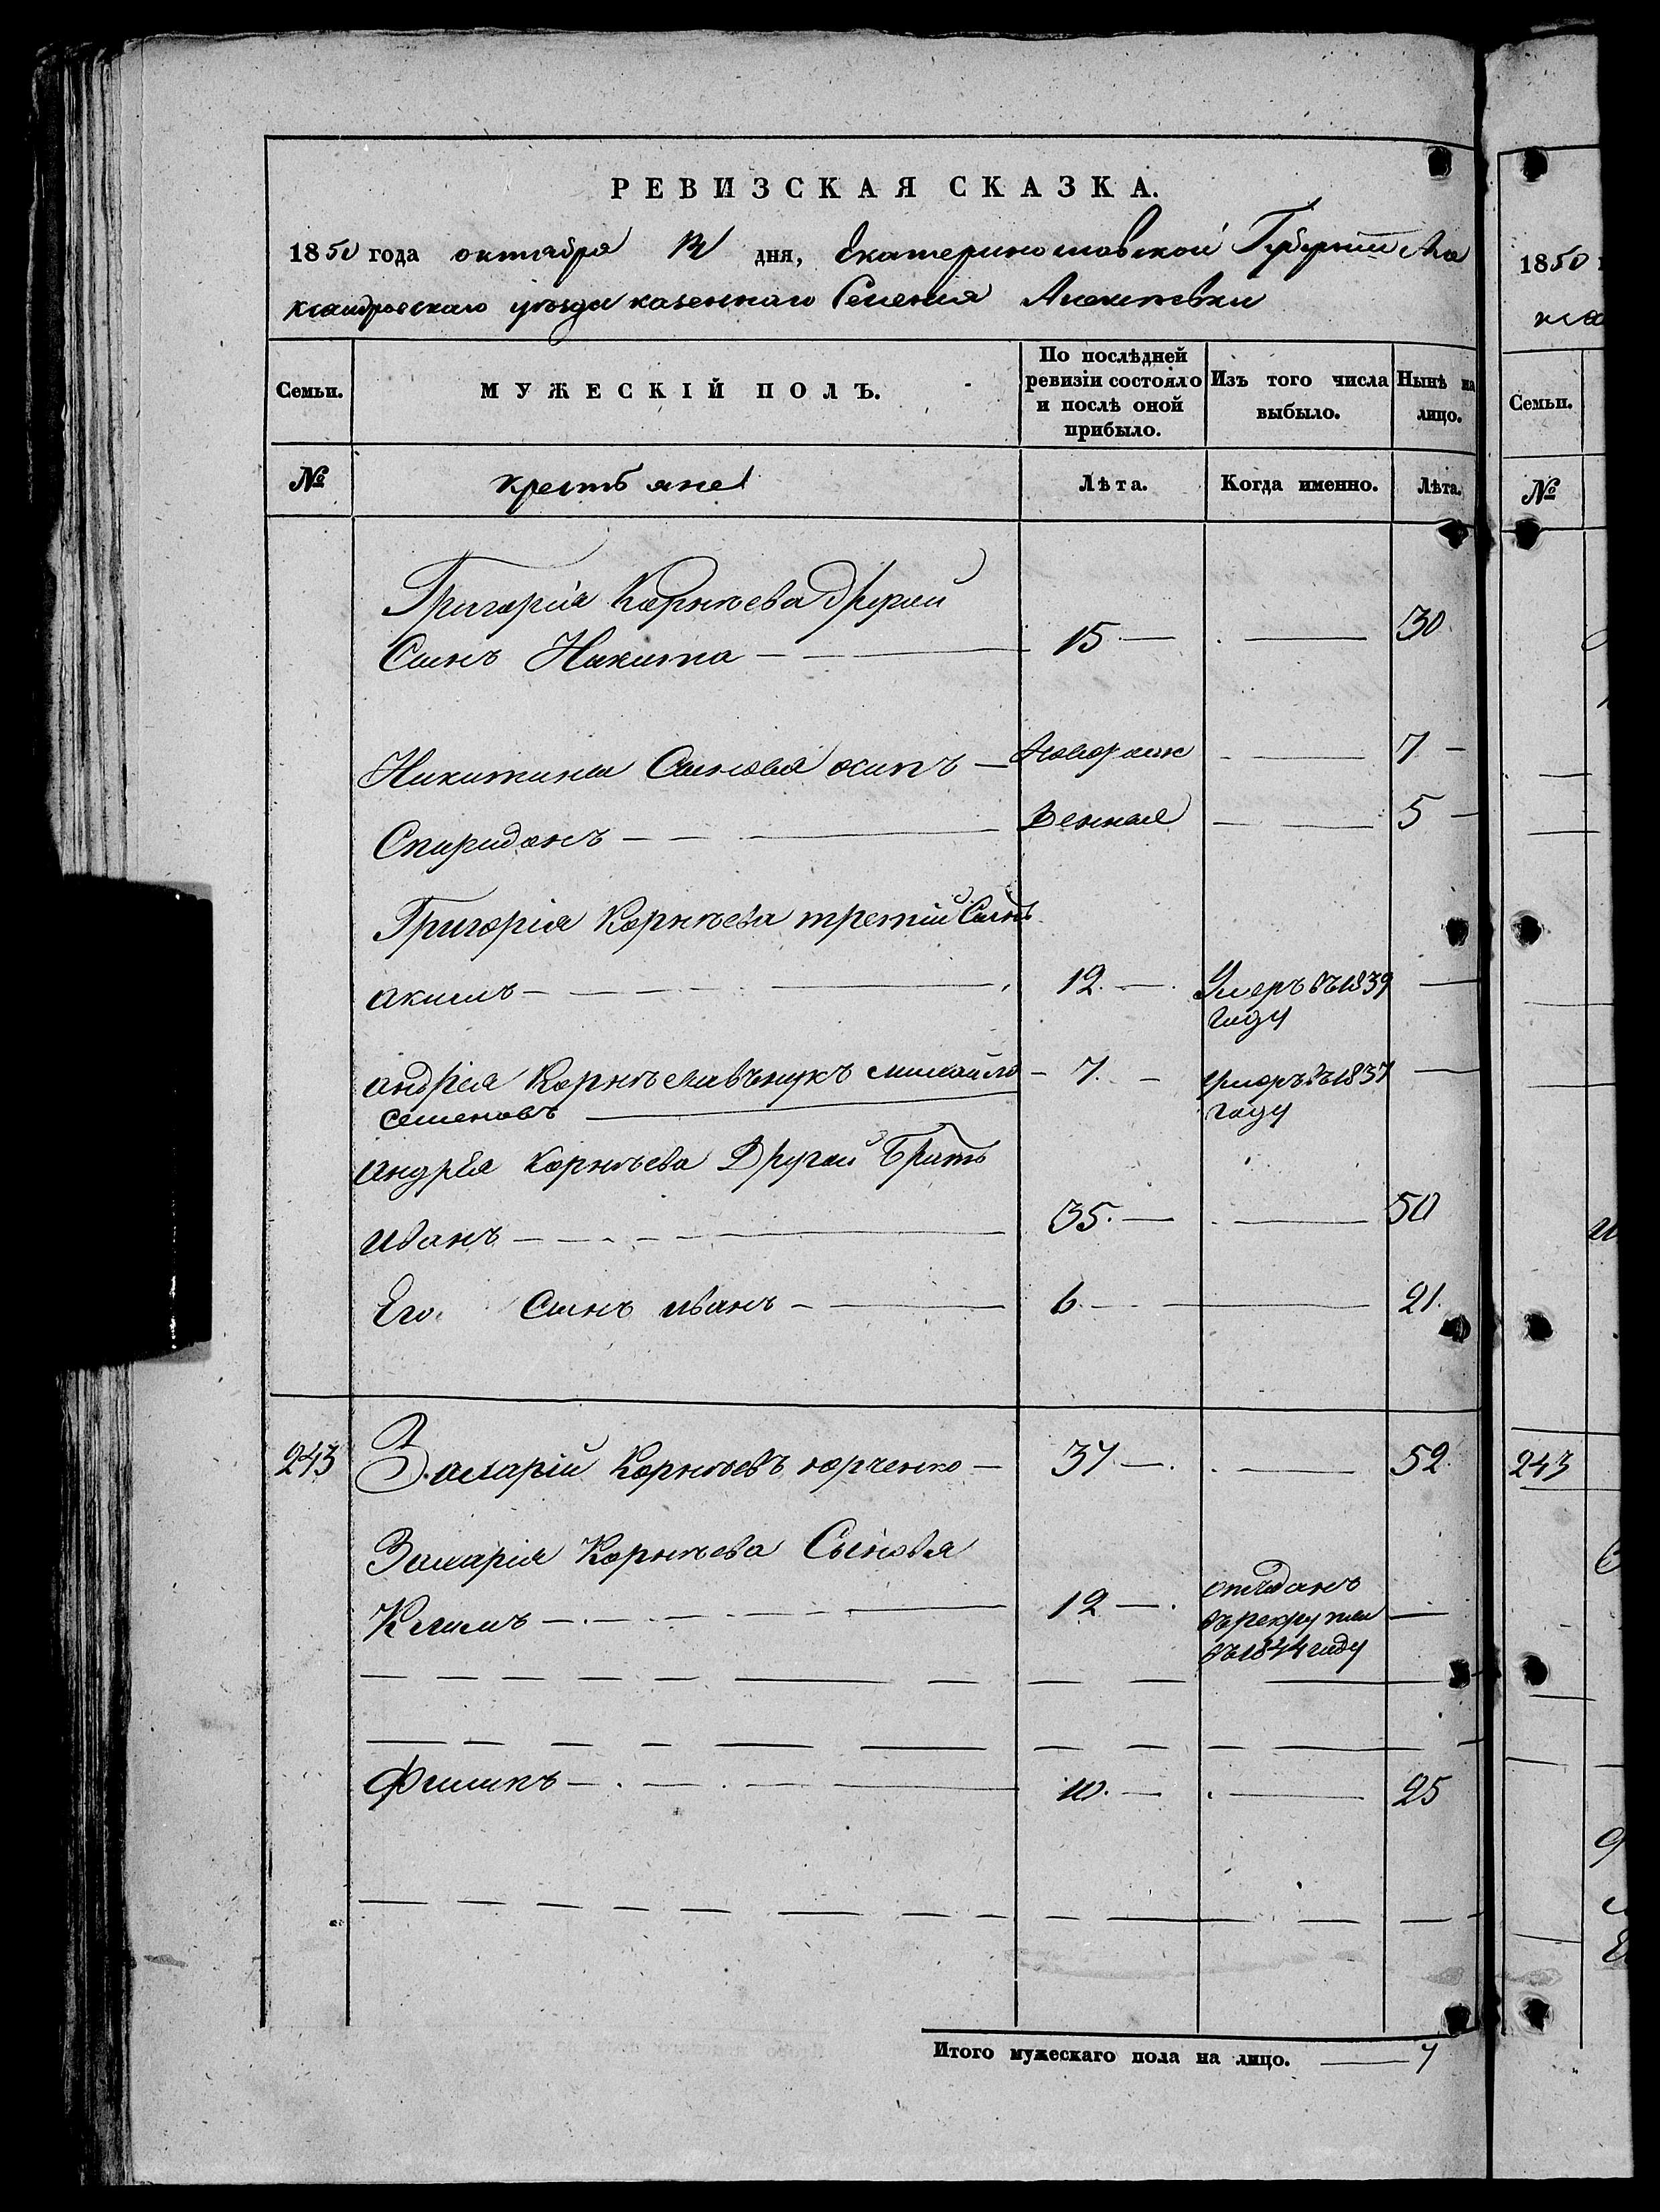 РЕВИЗСКАЯ СКАЗКА.
1850 года октября дня, Екатеринославской Губернии Але
ксандровскаго уѣзда казеннаго Селения
Семьи. МУЖЕСКІЙ ПОЛЪ. По послѣдней ревизіи состояло и послѣ оной прибыло. Изъ того числа выбыло. Нынѣ на лицо.
№ крестьяне Лѣта. Когда именно. Лѣта.
Григорія Корнѣева другой
Сынъ Никита 15 30
Никитины Сыновья осипъ новорож 7
Спиридонъ денные 5
Григорія Корнѣева третий Сынъ
акимъ 12 Умеръ въ 1839
году
андрея Корнѣева внукъ михайло 7 умеръ въ 1837
семеновъ году
андрея Корнѣева Другой Братъ
иванъ 35 50
Его Сынъ иванъ 6 21
243 Захарій Корнѣевъ юрченко 37 52
Захарія Корнѣева Сыновья
Климъ 12 отъданъ
въ рекруты
въ 1844 году
Филипъ 10 25
Итого мужескаго пола на лицо. 7
1850
кса
Семьи.
№
243